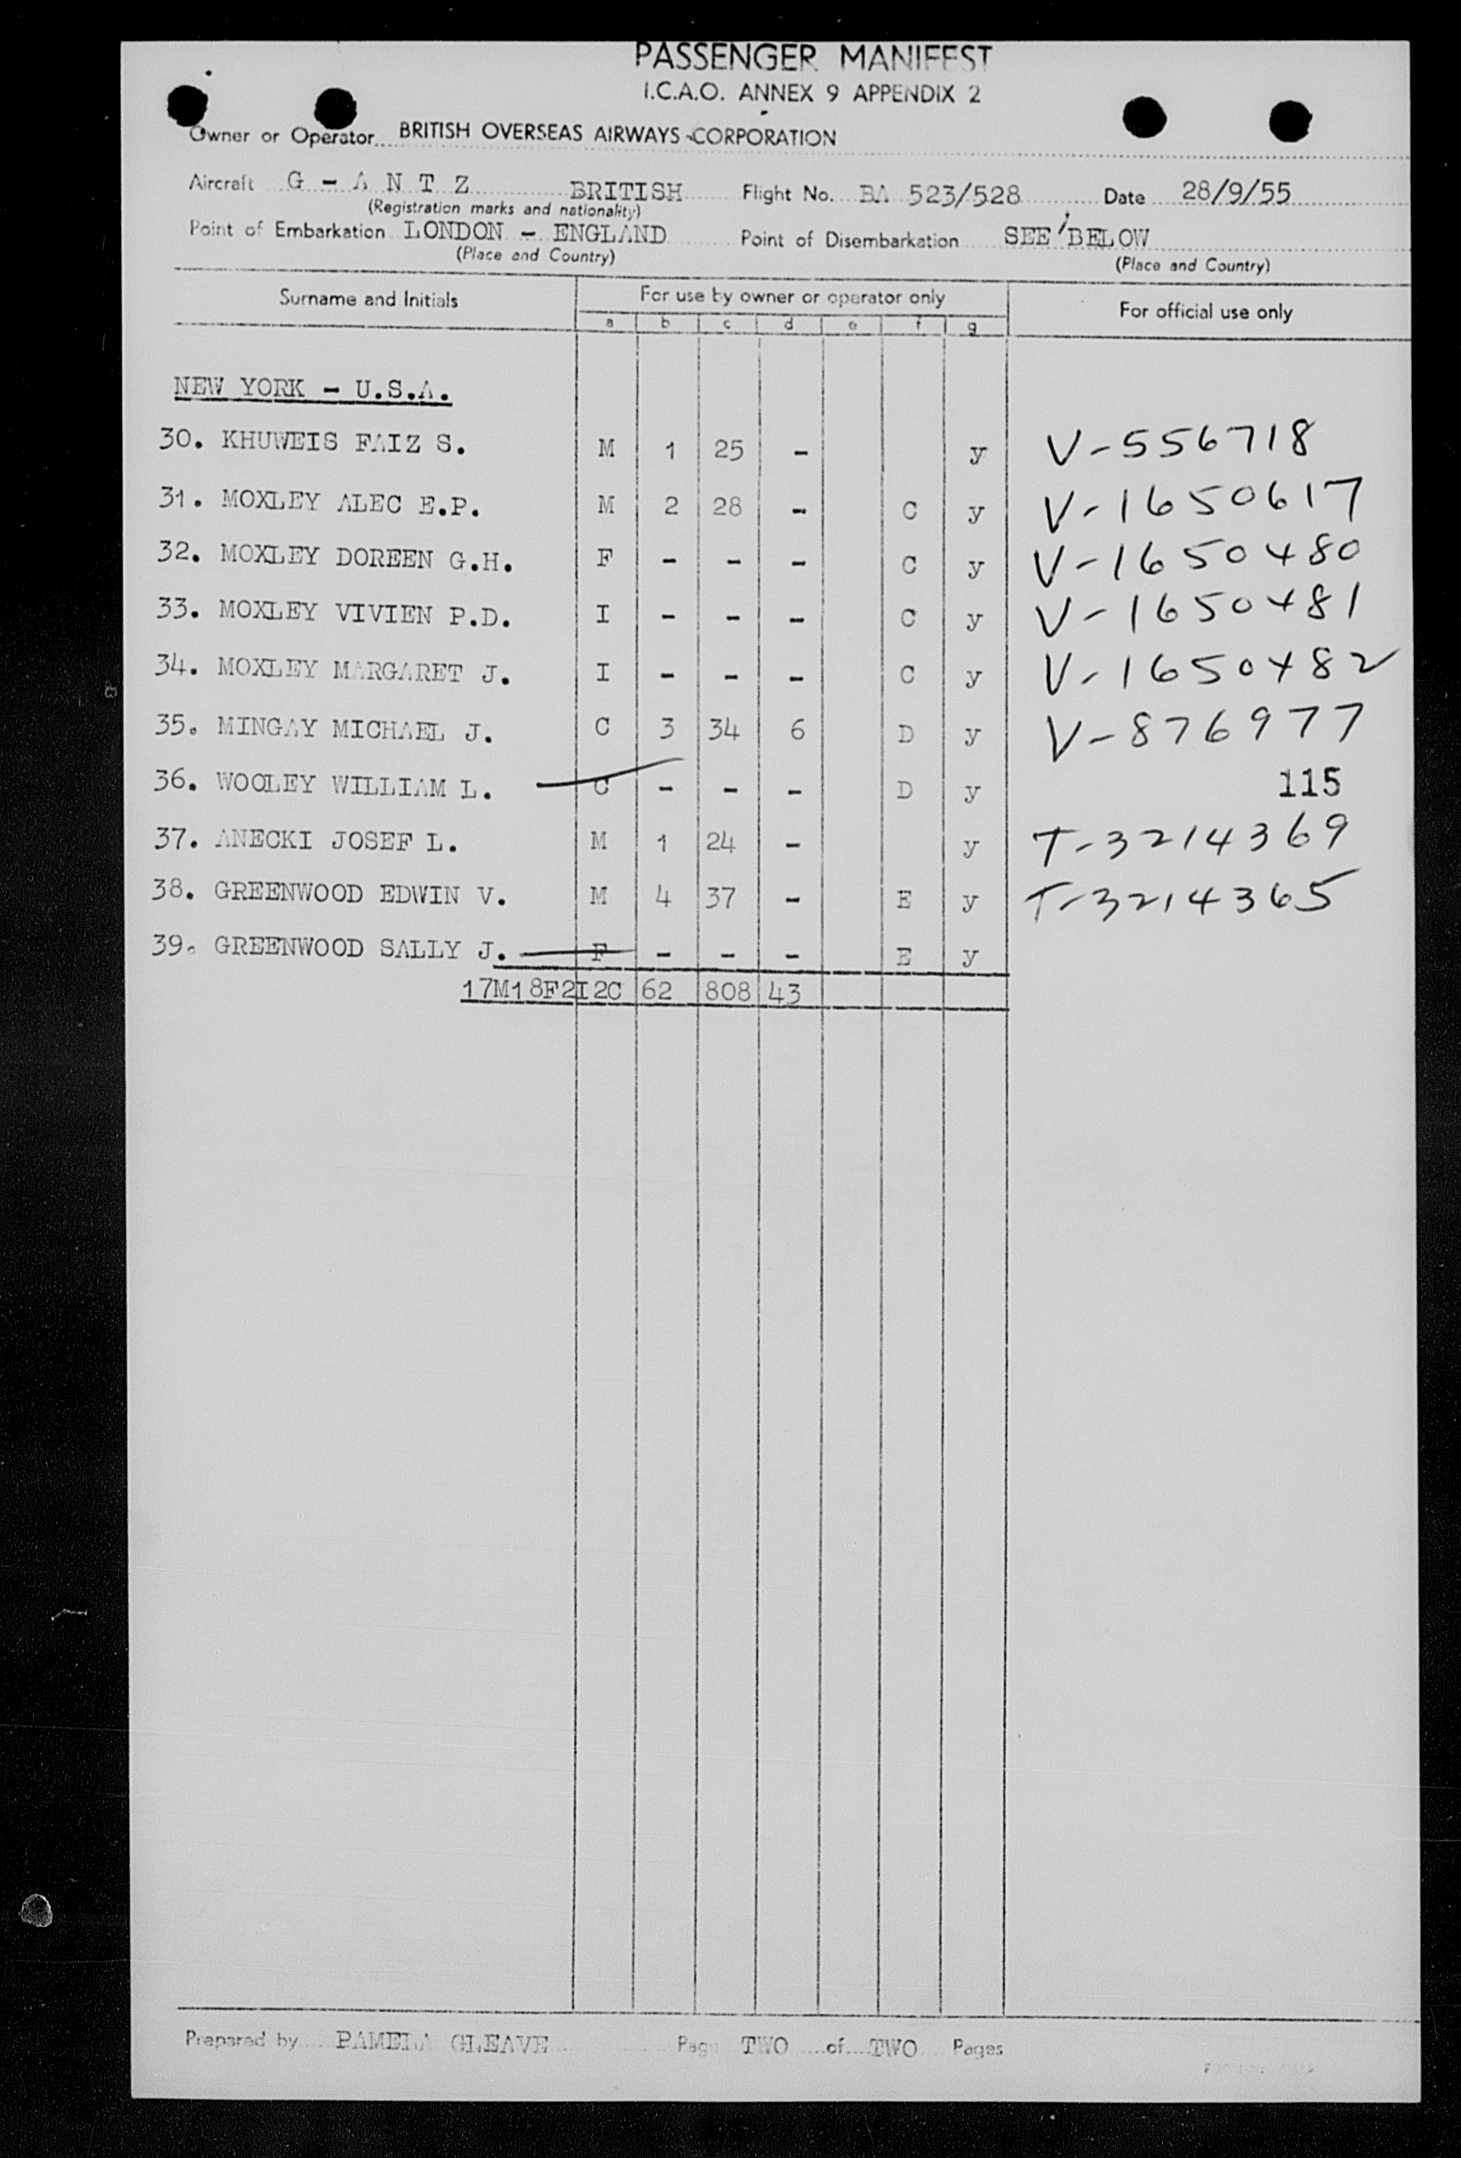 PASSENGER MANIFEST
I.C.A.O. ANNEX 9 APPENDIX 2
Owner or Operator BRITISH OVERSEAS AIRWAYS CORPORATION
Aircraft G - A N T Z BRITISH Flight No. BA 523/528 Date 28/9/55
(Registration marks and nationality)
Point of Embarkation LONDON - ENGLAND Point of Disembarkation SEE BELOW
(Place and Country) (Place and Country)
Surname and Initials For use by owner or operator only For official use only
a b c d e f g
NEW YORK - U.S.A.
30. KHUWEIS FAIZ S. M 1 25 - y V-556718
31. MOXLEY ALEC E.P. M 2 28 - C y V-1650617
32. MOXLEY DOREEN G.H. F - - - C y V-1650480
33. MOXLEY VIVIEN P.D. I - - - C y V-1650481
34. MOXLEY MARGARET J. I - - - C y V-1650482
35. MINGAY MICHAEL J. C 3 34 6 D y V-876977
36. WOOLEY WILLIAM L. C - - - D y 115
37. ANECKI JOSEF L. M 1 24 - y T-3214369
38. GREENWOOD EDWIN V. M 4 37 - E y T-3214365
39. GREENWOOD SALLY J. F - - - E y
17M18F2I2C 62 808 43
Prepared by PAMELA GLEAVE Page TWO of TWO Pages